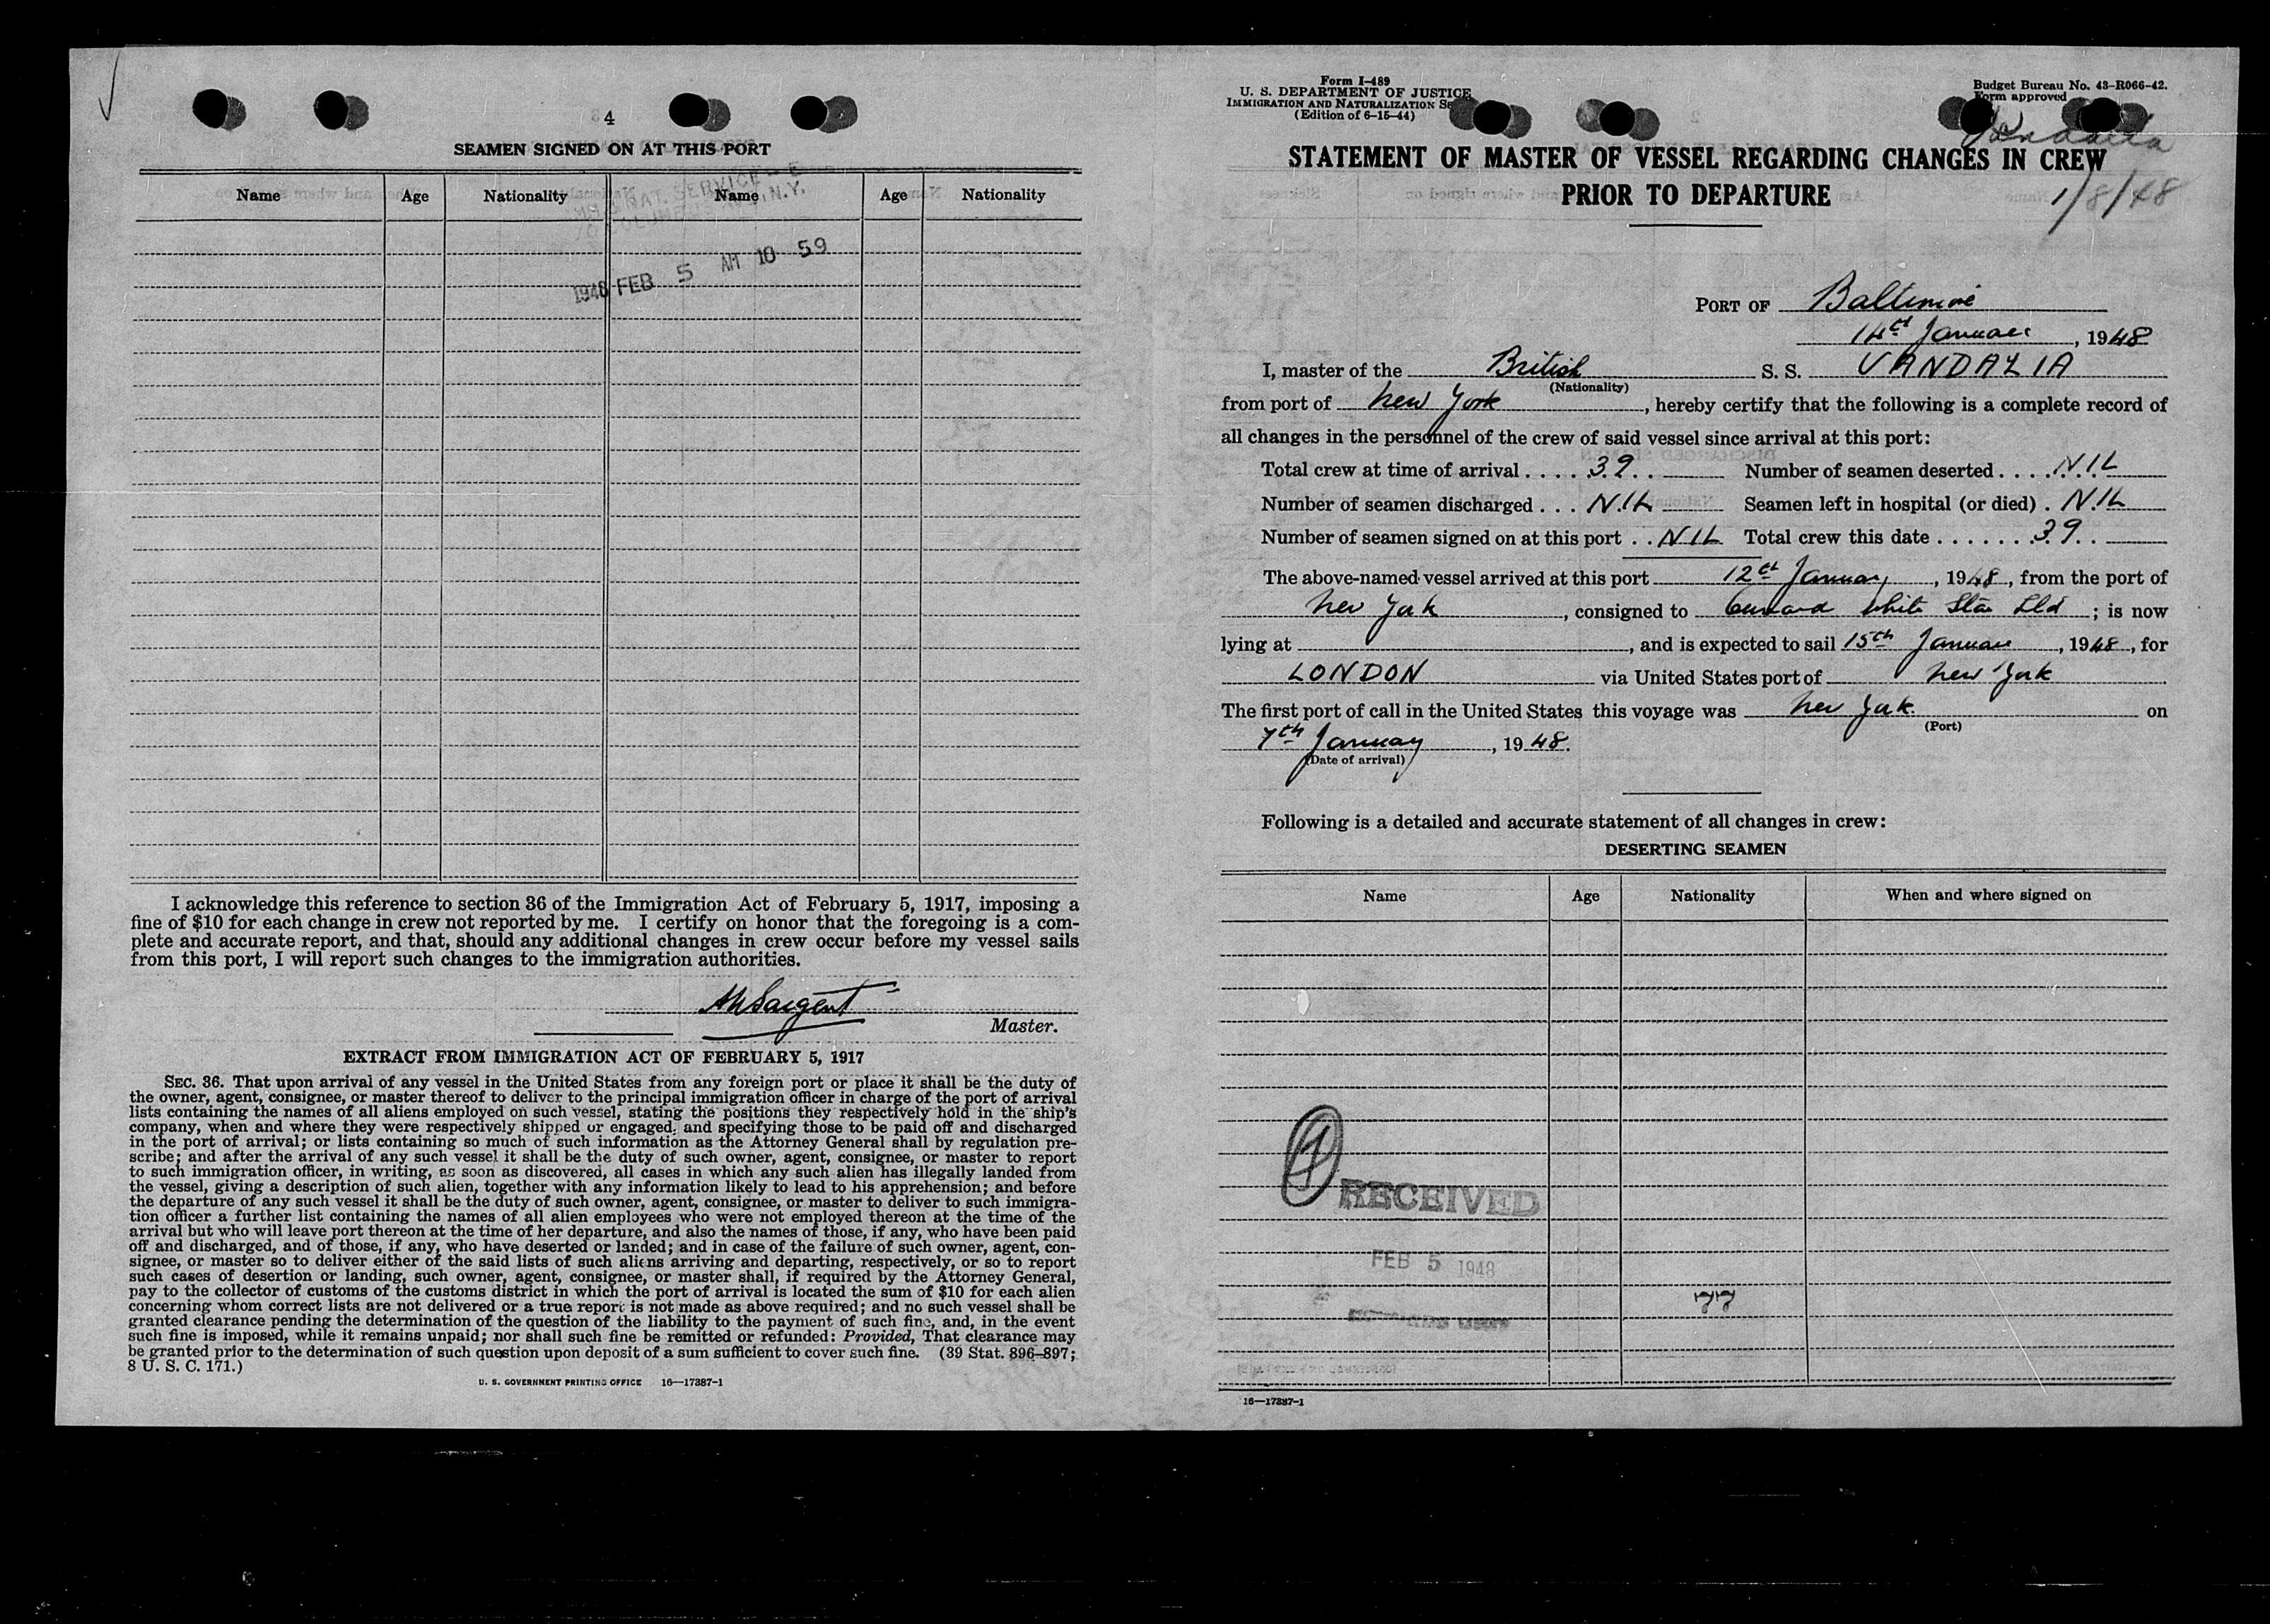 4
SEAMEN SIGNED ON AT THIS PORT
Name Age Nationality Name Age Nationality
NAT. SERVICE
N.Y.
1948 FEB 5 AM 10 59
I acknowledge this reference to section 36 of the Immigration Act of February 5, 1917, imposing a
fine of $10 for each change in crew not reported by me. I certify on honor that the foregoing is a com-
plete and accurate report, and that, should any additional changes in crew occur before my vessel sails
from this port, I will report such changes to the immigration authorities.
Sargent
Master.
EXTRACT FROM IMMIGRATION ACT OF FEBRUARY 5, 1917
SEC. 36. That upon arrival of any vessel in the United States from any foreign port or place it shall be the duty of
the owner, agent, consignee, or master thereof to deliver to the principal immigration officer in charge of the port of arrival
lists containing the names of all aliens employed on such vessel, stating the positions they respectively hold in the ship's
company, when and where they were respectively shipped or engaged, and specifying those to be paid off and discharged
in the port of arrival; or lists containing so much of such information as the Attorney General shall by regulation pre-
scribe; and after the arrival of any such vessel it shall be the duty of such owner, agent, consignee, or master to report
to such immigration officer, in writing, as soon as discovered, all cases in which any such alien has illegally landed from
the vessel, giving a description of such alien, together with any information likely to lead to his apprehension; and before
the departure of any such vessel it shall be the duty of such owner, agent, consignee, or master to deliver to such immigra-
tion officer a further list containing the names of all alien employees who were not employed thereon at the time of the
arrival but who will leave port thereon at the time of her departure, and also the names of those, if any, who have been paid
off and discharged, and of those, if any, who have deserted or landed; and in case of the failure of such owner, agent, con-
signee, or master so to deliver either of the said lists of such aliens arriving and departing, respectively, or so to report
such cases of desertion or landing, such owner, agent, consignee, or master shall, if required by the Attorney General,
pay to the collector of customs of the customs district in which the port of arrival is located the sum of $10 for each alien
concerning whom correct lists are not delivered or a true report is not made as above required; and no such vessel shall be
granted clearance pending the determination of the question of the liability to the payment of such fine, and, in the event
such fine is imposed, while it remains unpaid; nor shall such fine be remitted or refunded: Provided, That clearance may
be granted prior to the determination of such question upon deposit of a sum sufficient to cover such fine. (39 Stat. 896–897;
8 U. S. C. 171.)
U. S. GOVERNMENT PRINTING OFFICE 16—17387-1
Form I-489
U. S. DEPARTMENT OF JUSTICE
IMMIGRATION AND NATURALIZATION
(Edition of 6-15-44)
Budget Bureau No. 43-R066-42.
Form approved
Vandalia
1/8/48
STATEMENT OF MASTER OF VESSEL REGARDING CHANGES IN CREW
PRIOR TO DEPARTURE
PORT OF Baltimore
14th January, 1948
I, master of the British S. S. VANDALIA
(Nationality)
from port of New York, hereby certify that the following is a complete record of
all changes in the personnel of the crew of said vessel since arrival at this port:
Total crew at time of arrival . . . . 39 . . Number of seamen deserted . . . . NIL
Number of seamen discharged . . . NIL Seamen left in hospital (or died) . NIL
Number of seamen signed on at this port . . NIL Total crew this date . . . . . . . 39 . .
The above-named vessel arrived at this port 12th January, 1948, from the port of
New York, consigned to Cunard White Star Ltd; is now
lying at , and is expected to sail 15th January, 1948, for
LONDON via United States port of New York
The first port of call in the United States this voyage was New York on
(Port)
7th January, 1948.
(Date of arrival)
Following is a detailed and accurate statement of all changes in crew:
DESERTING SEAMEN
Name Age Nationality When and where signed on
RECEIVED
FEB 5 1948
77
16—17387-1